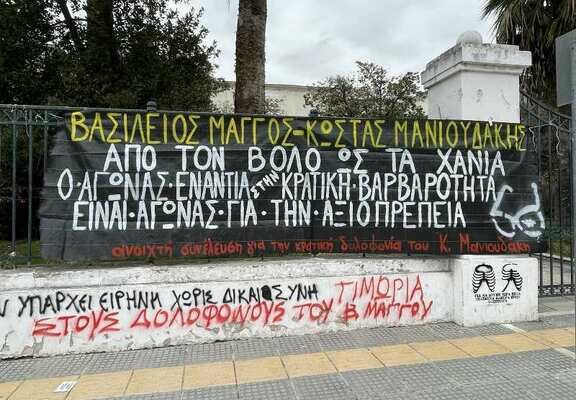 ΒΑΣΙΛΕΙΟΣ ΜΑΓΓΟΣ-ΚΩΣΤΑΣ ΜΑΝΙΟΥΔΑΚΗΣ
ΑΠΟ ΤΟΝ ΒΟΛΟ ΩΣ ΤΑ ΧΑΝΙΑ
Ο·ΑΓΩΝΑΣ·ΕΝΑΝΤΙΑ ΣΤΗΝ ΚΡΑΤΙΚΗ·ΒΑΡΒΑΡΟΤΗΤΑ
ΕΙΝΑΙ·ΑΓΩΝΑΣ·ΓΙΑ·ΤΗΝ·ΑΞΙΟΠΡΕΠΕΙΑ
ανοιχτή συνέλευση για την κρατική δολοφονία του Κ. Μανιουδάκη
Ν ΥΠΑΡΧΕΙ ΕΙΡΗΝΗ ΧΩΡΙΣ ΔΙΚΑΙΟΣΥΝΗ
ΤΙΜΩΡΙΑ
ΣΤΟΥΣ ΔΟΛΟΦΟΝΟΥΣ ΤΟΥ Β. ΜΑΓΓΟΥ